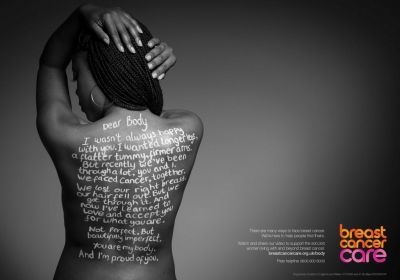 Dear Body
I wasn't always happy
with you. I wanted longer legs,
a flatter tummy, firmer arms.
But recently we've been
through a lot, you and I.
We faced cancer, together.
We lost our right breast,
our hair fell out. But we
got through it. And
now I've learned to
love and accept you
for what you are.
Not perfect. But
beautifully imperfect.
You are my body.
And I'm proud of you.
There are many ways to face breast cancer.
We're here to help people find theirs.
Watch and share our video to support the
women living with and beyond breast cancer.
breastcancercare.org.uk/body
Free helpline 0808 800 6000
breast
cancer
care